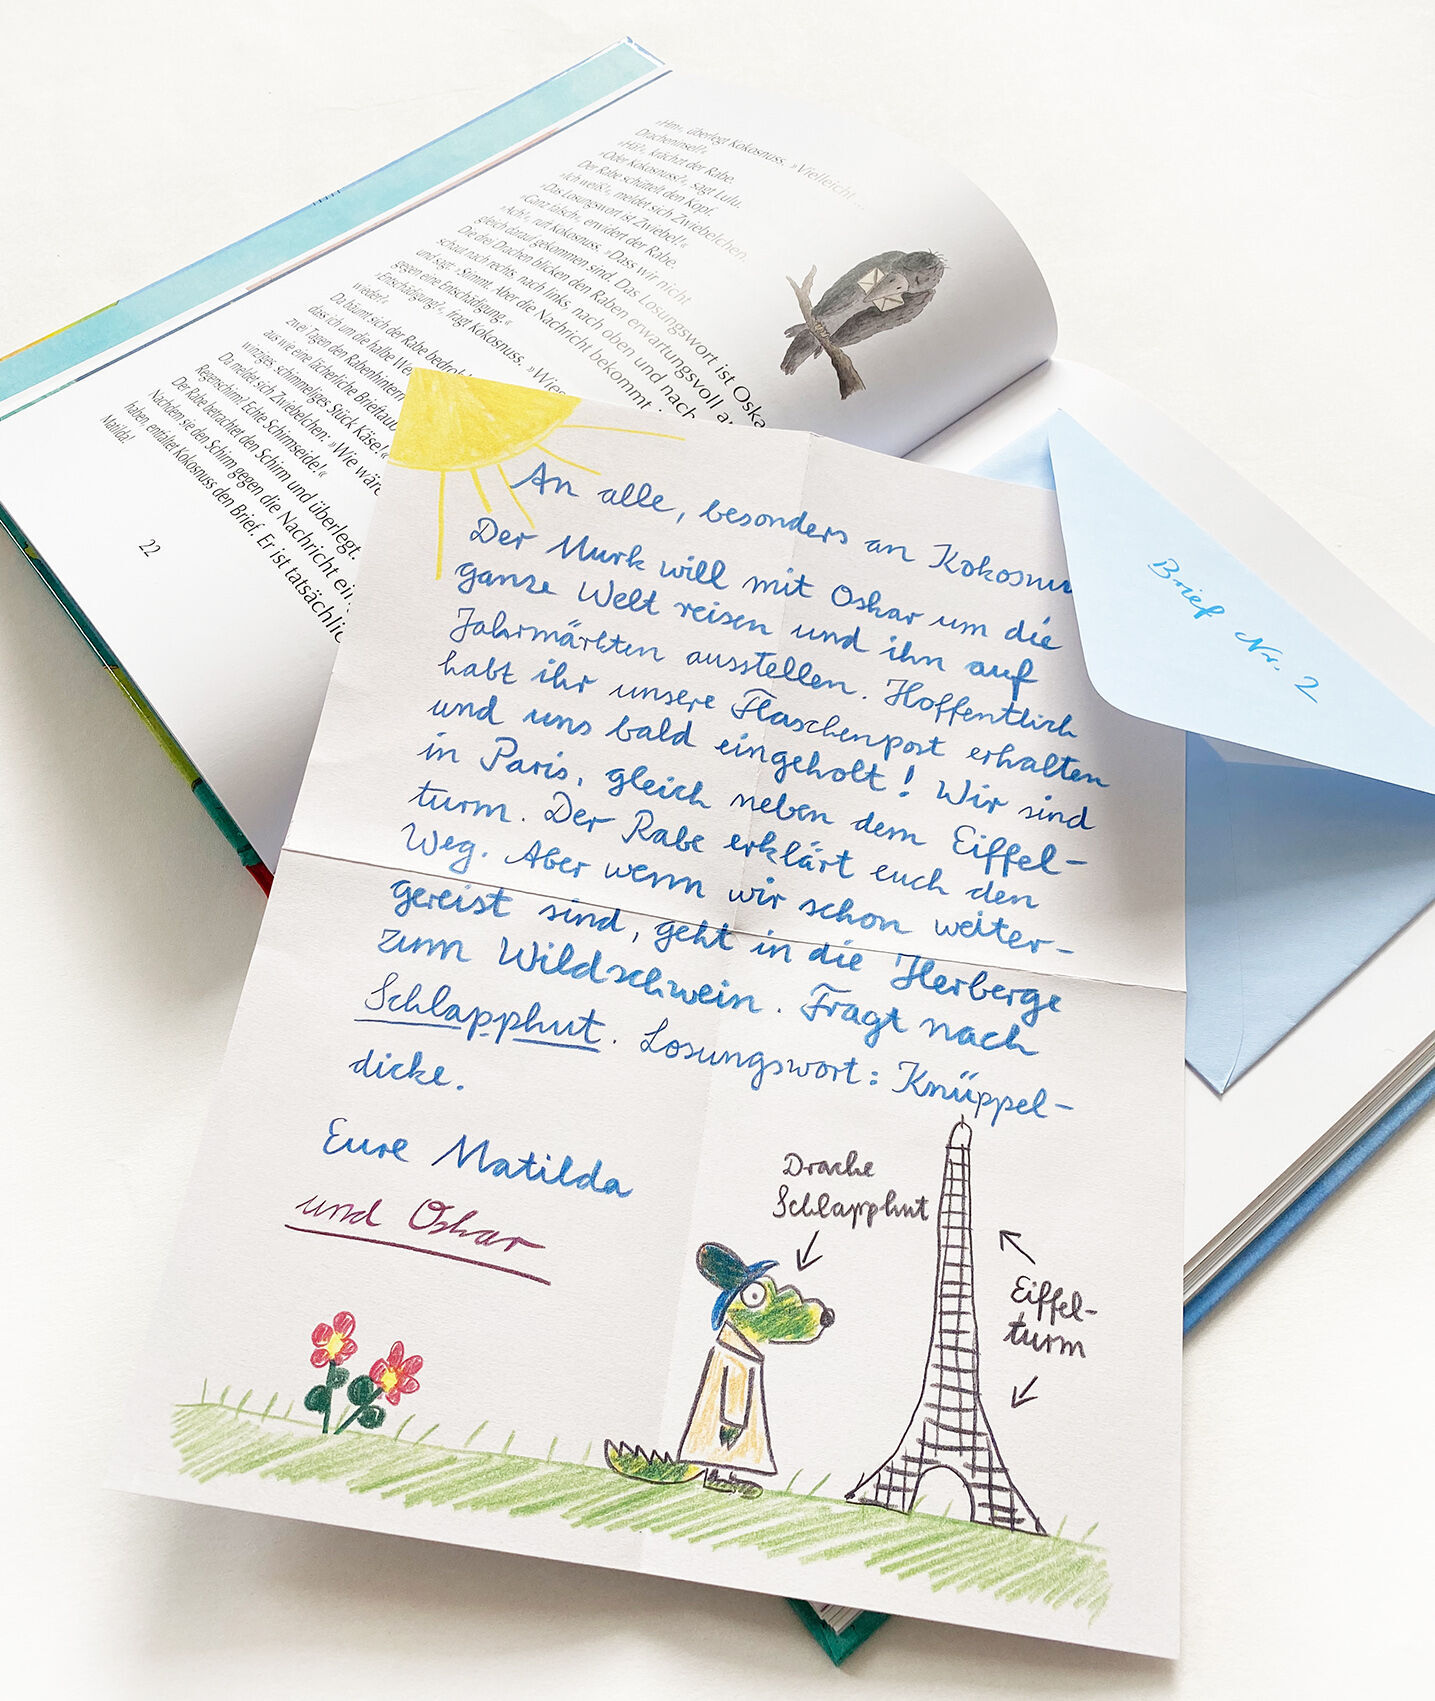 »Hm«, überlegt Kokosnuss. »Vielleicht ...
Dracheninsel?«
»Hä?«, krächzt der Rabe.
»Oder Kokosnuss?«, sagt Lulu.
Der Rabe schüttelt den Kopf.
»Ich weiß!«, meldet sich Zwiebelchen.
»Das Losungswort ist Zwiebel!«
»Ganz falsch«, erwidert der Rabe.
»Ach!«, ruft Kokosnuss. »Dass wir nicht
gleich darauf gekommen sind. Das Losungswort ist Oska
Die drei Drachen blicken den Raben erwartungsvoll a
schaut nach rechts, nach links, nach oben und nach
und sagt: »Stimmt. Aber die Nachricht bekommt i
gegen eine Entschädigung.«
»Entschädigung?«, fragt Kokosnuss. »Wies
wieder?«
Da bäumt sich der Rabe bedroh
dass ich um die halbe We
zwei Tagen den Rabenhintern
aus wie eine lächerliche Brieftaub
winziges schimmeliges Stück Käse!«
Da meldet sich Zwiebelchen: »Wie wäre
Regenschirm? Echte Schirmseide!«
Der Rabe betrachtet den Schirm und überlegt.
Nachdem sie den Schirm gegen die Nachricht ein
haben, entfaltet Kokosnuss den Brief. Er ist tatsächlic
Matilda!
22
An alle, besonders an Kokosnu
Der Murk will mit Oskar um die
ganze Welt reisen und ihn auf
Jahrmärkten ausstellen. Hoffentlich
habt ihr unsere Flaschenpost erhalten
und uns bald eingeholt! Wir sind
in Paris, gleich neben dem Eiffel-
turm. Der Rabe erklärt euch den
Weg. Aber wenn wir schon weiter-
gereist sind, geht in die Herberge
zum Wildschwein. Fragt nach
Schlapphut. Losungswort: Knüppel-
dicke.
Eure Matilda
und Oskar
Drache
Schlapphut
Eiffel-
turm
Brief Nr. 2